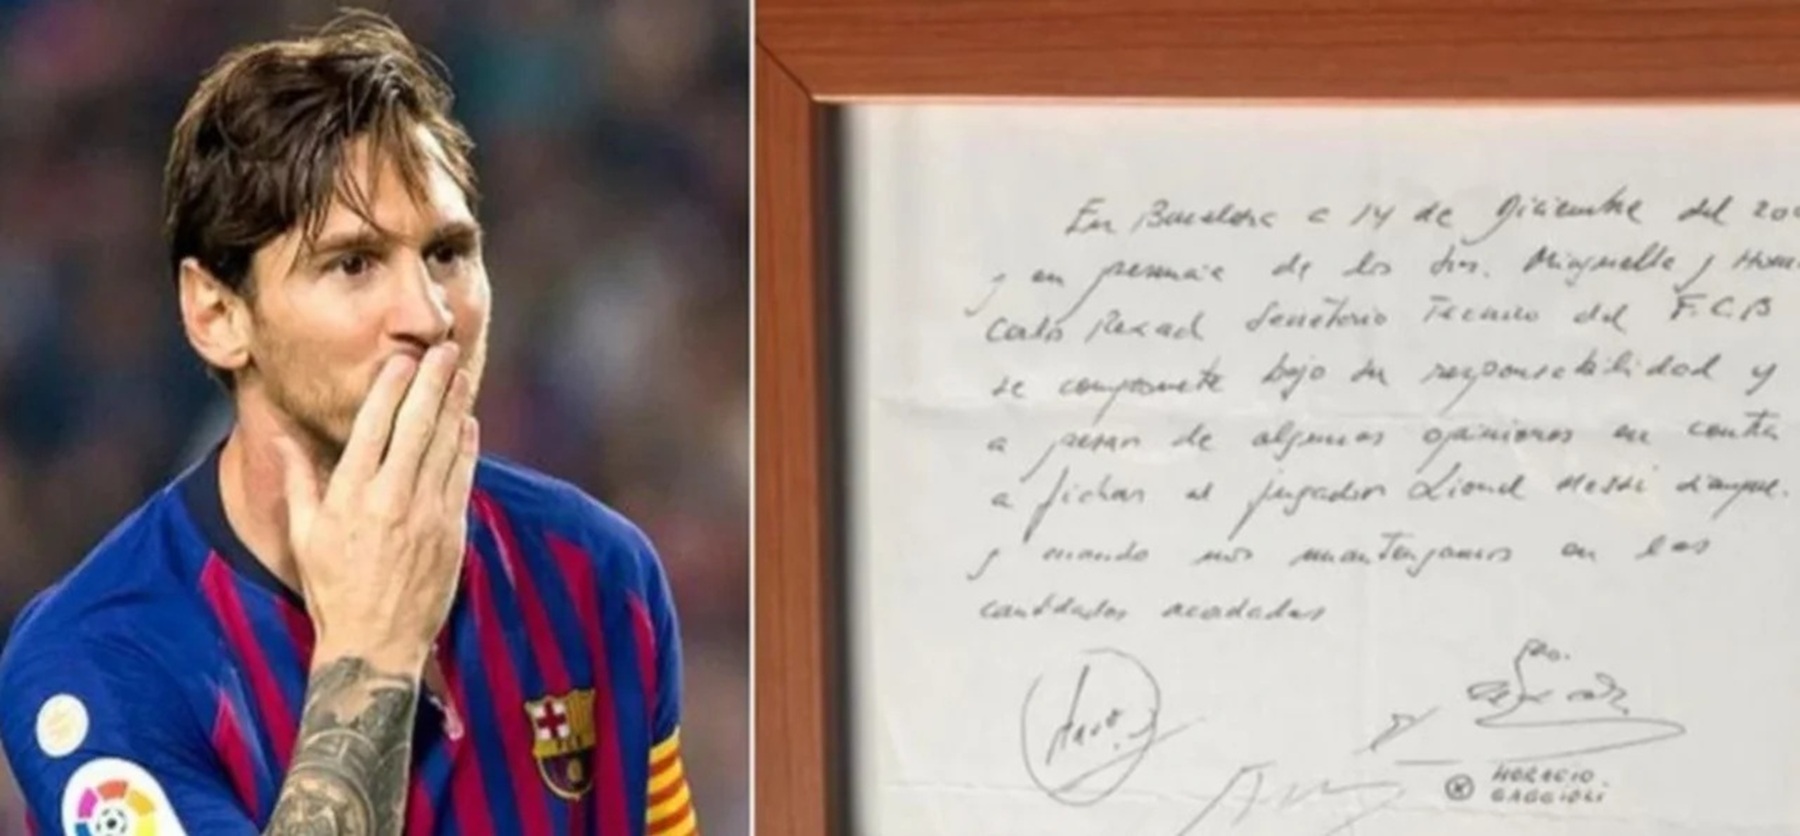 En Barcelona a 14 de Diciembre del 200
y en presencia de los Srs. Minguella y Hora
Carlos Rexach Secretario Técnico del F.C.B
se compromete bajo su responsabilidad y
a pesar de algunas opiniones en contra
a fichar al jugador Lionel Messi siempre
y cuando nos mantengamos en las
cantidades acordadas
HORACIO
GAGGIOLI